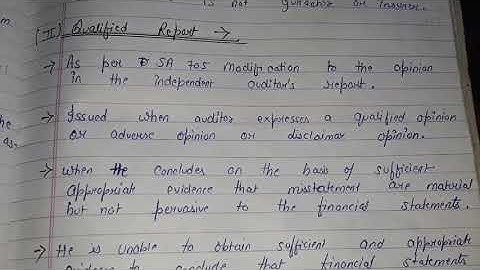 is not guarantor or insurer.
(II) Qualified Report →
→ As per SA 705 modification to the opinion
in the independent auditor's report.
→ Issued when auditor expresses a qualified opinion
or adverse opinion or disclaimar opinion.
→ When He concludes on the basis of sufficient
appropriate evidence that misstatement are material
but not pervasive to the financial statements.
→ He is Unable to obtain sufficient and appropriate
evidence to conclude that financial statements